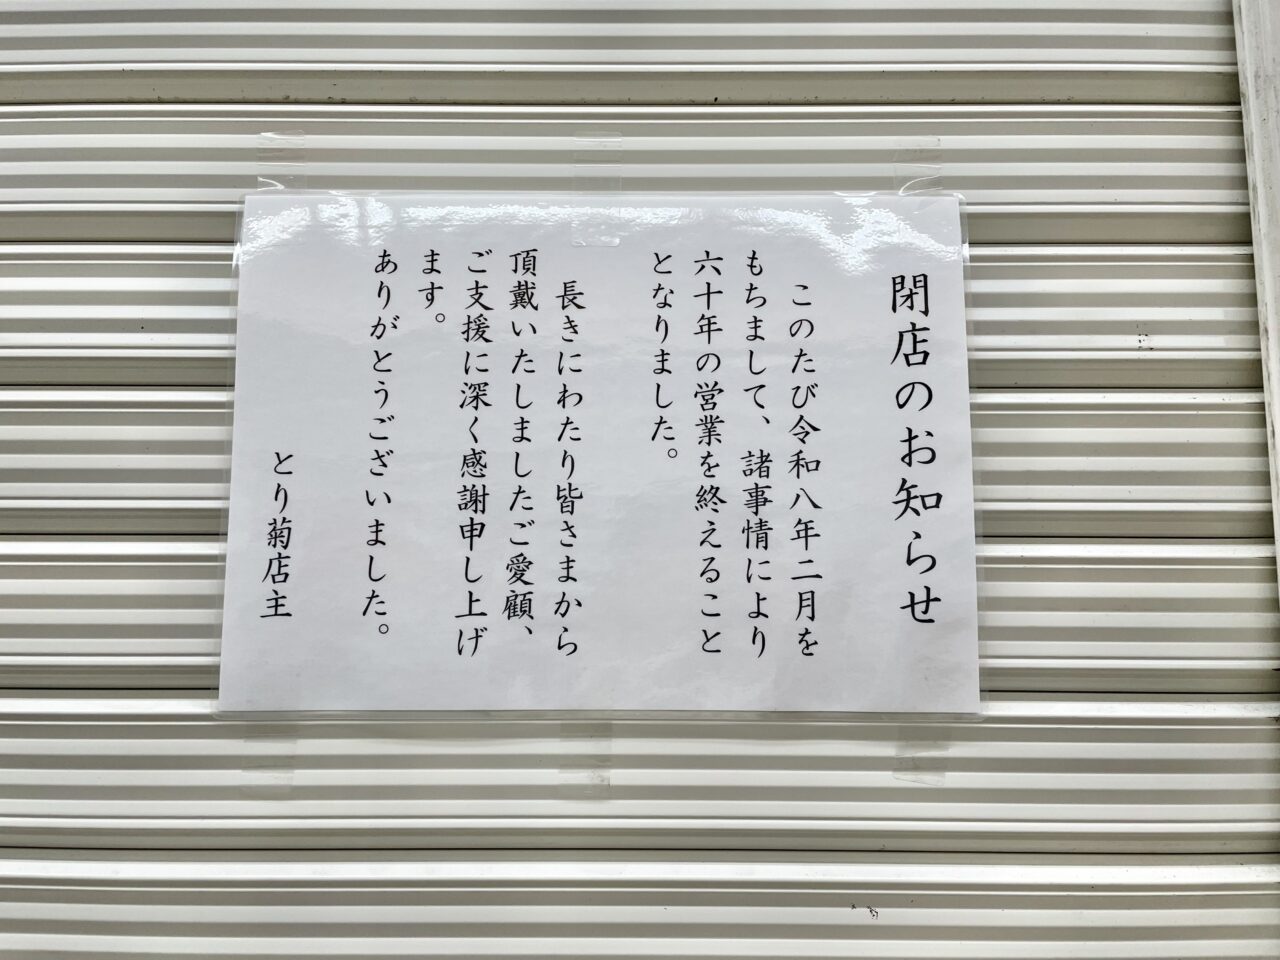 閉店のお知らせ
このたび令和八年二月を
もちまして、諸事情により
六十年の営業を終えること
となりました。
長きにわたり皆さまから
頂戴いたしましたご愛顧、
ご支援に深く感謝申し上げ
ます。
ありがとうございました。
とり菊店主